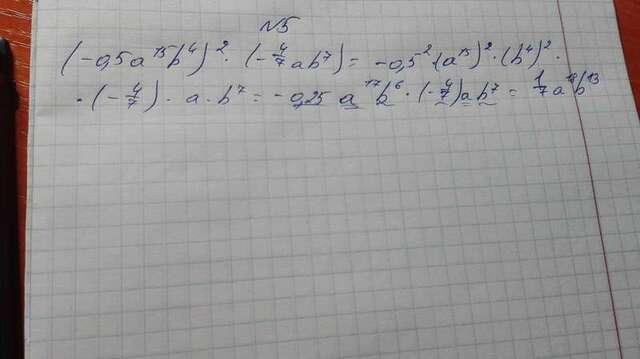 №5
(-0,5a¹⁵b⁴)² · (-4/7ab⁷) = -0,5² · (a¹⁵)² · (b⁴)² ·
· (-4/7) · a · b⁷ = -0,25 a¹⁷ b⁶ · (-4/7)ab⁷ = 1/7a¹⁸b¹³